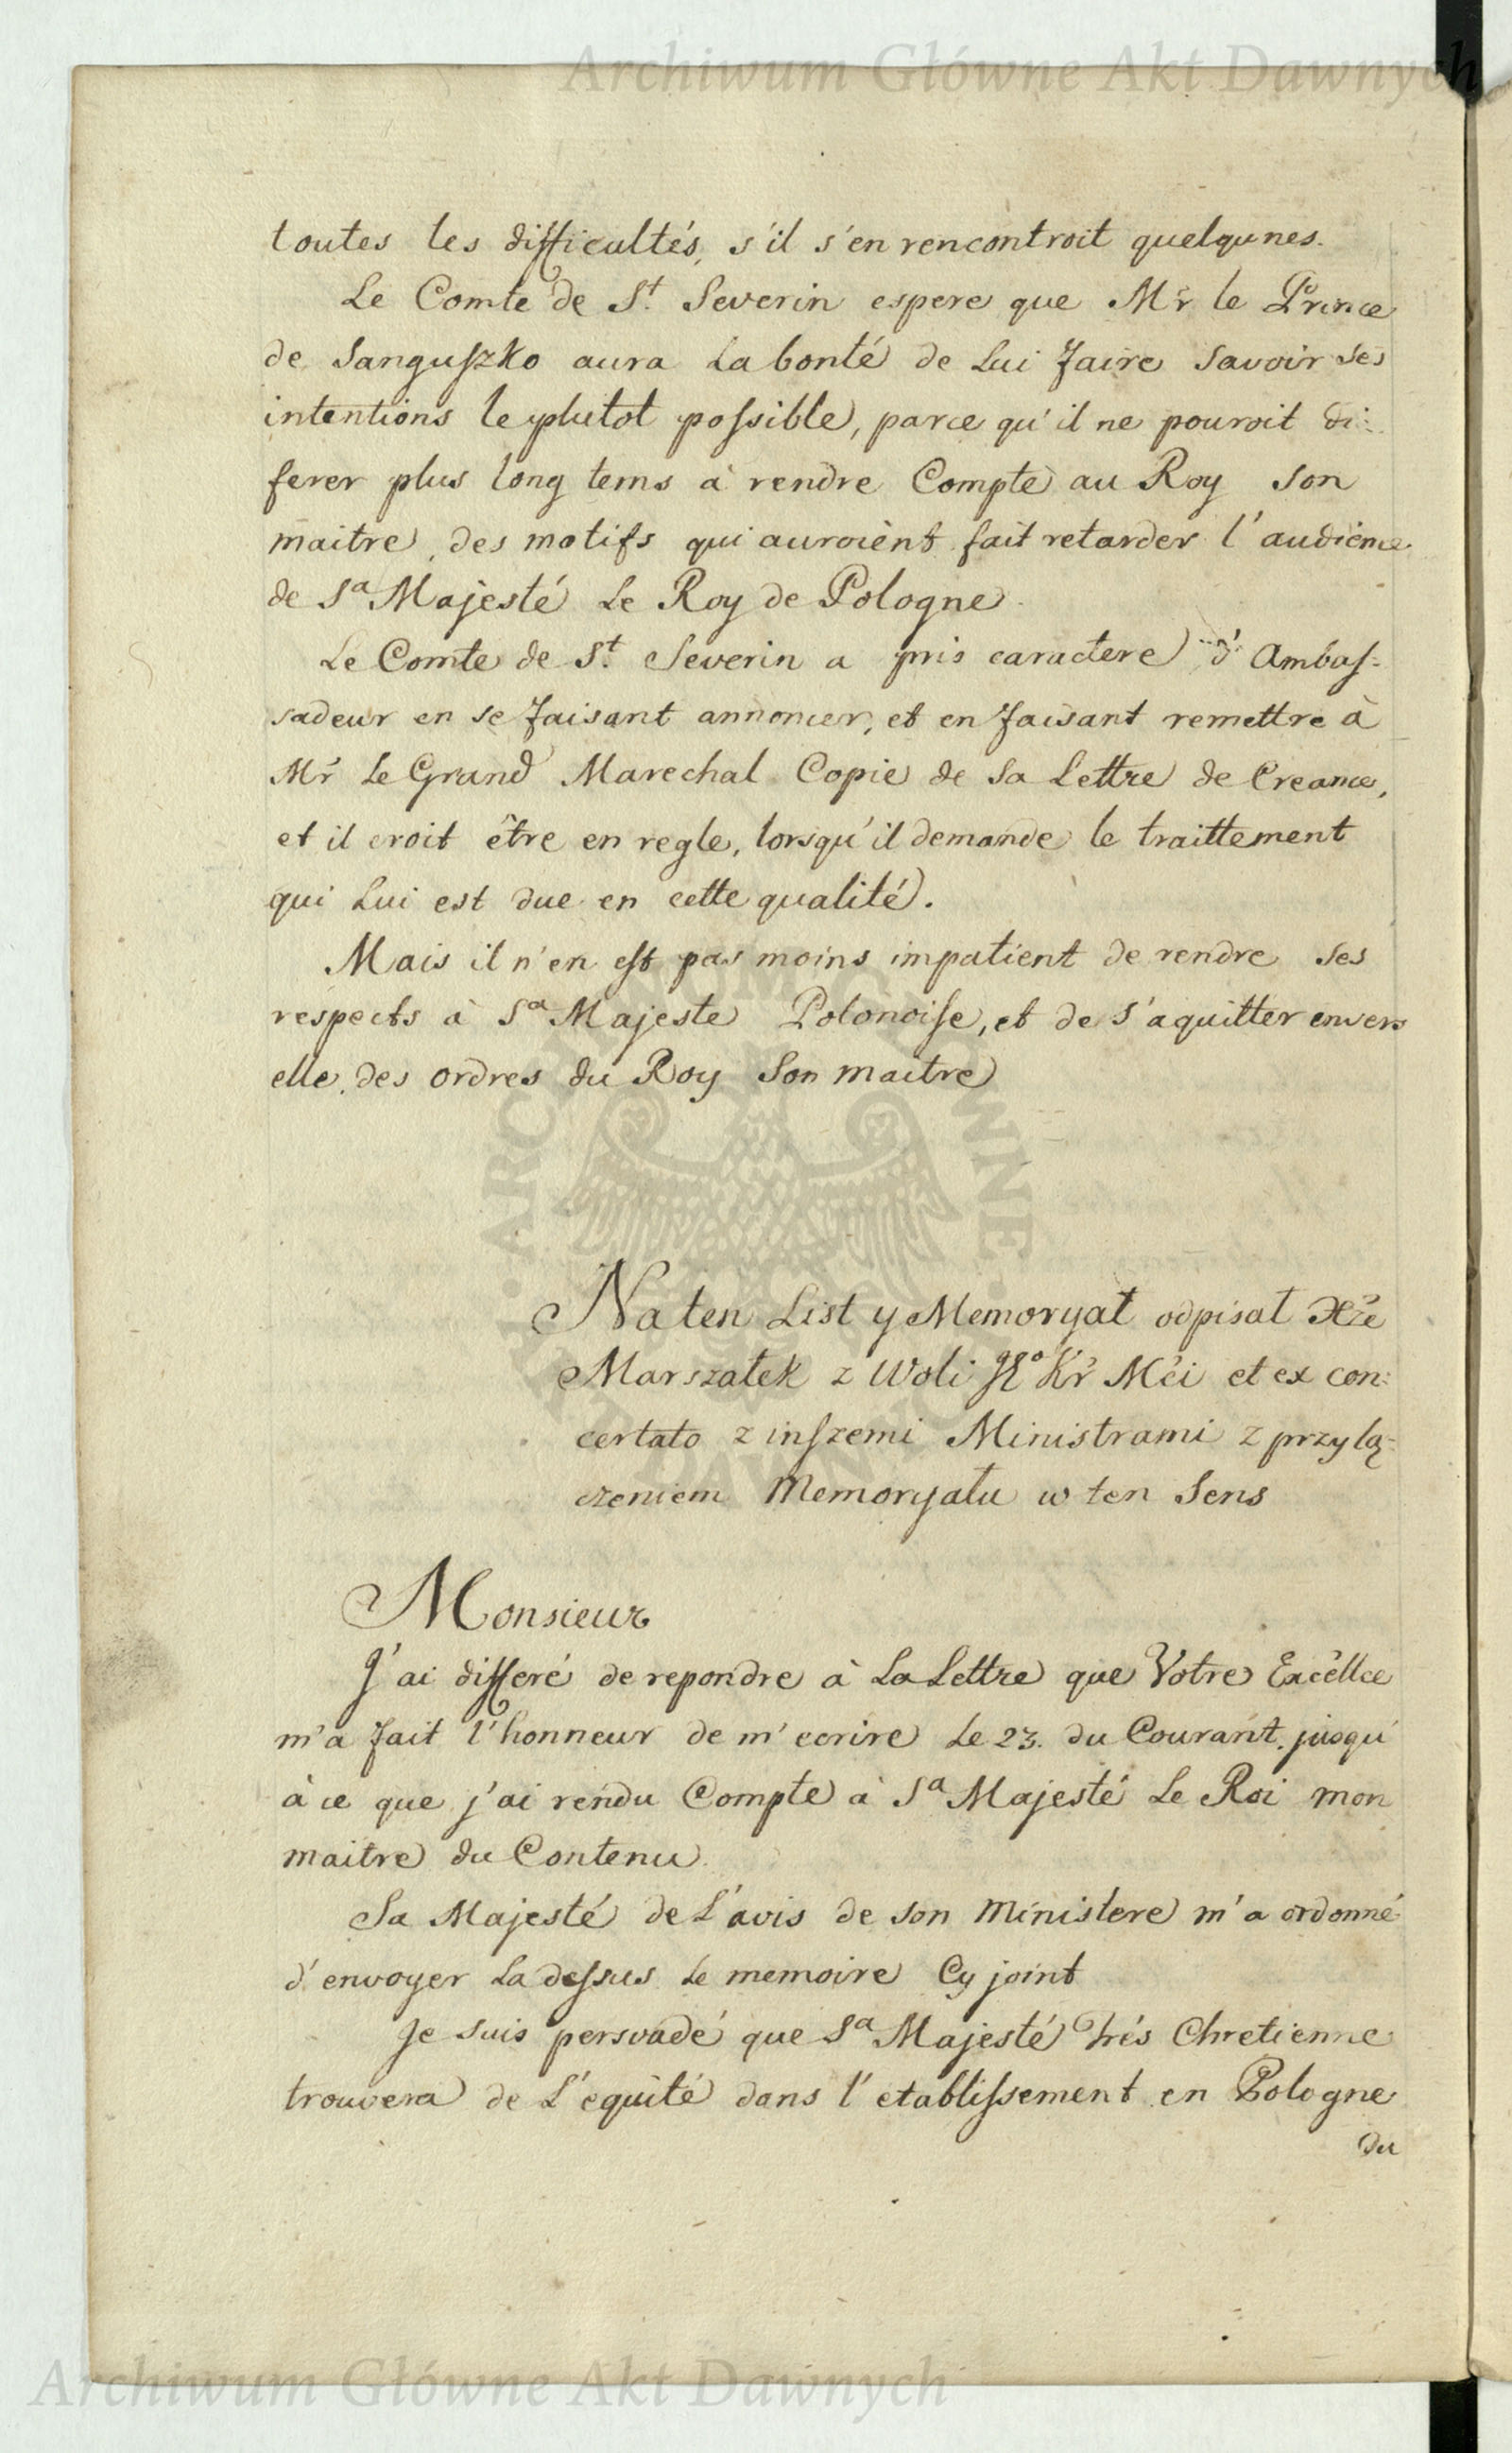 Archiwum Główne Akt Dawnych
toutes les difficultés, s'il s'en rencontroit quelqunes.
Le Comte de St. Severin espere que Mr le Prince
de Sanguszko aura la bonté de Lui faire Savoir ses
intentions le plutot possible, parce qu'il ne pouroit di:
ferer plus long tems à rendre Compte au Roy Son
maitre, des motifs qui auroient fait retarder l'audience
de Sa Majesté Le Roy de Pologne.
Le Comte de St. Severin a pris caractere d'Ambas:
sadeur en se faisant annoncer, et en faisant remettre à
Mr Le Grand Marechal Copie de Sa Lettre de Creance,
et il croit être en regle, lorsqu'il demande le traittement
qui Lui est due en cette qualité.
Mais il n'en est pas moins impatient de rendre Ses
respects à Sa Majeste Polonoise, et de s'aquitter envers
elle, des ordres du Roy Son maitre
Na ten List y Memoryał odpisał Xże
Marszałek z Woli Jego Kr Mci et ex con:
certato z inszemi Ministrami z przylą:
czeniem Memoryału w ten Sens
Monsieur
J'ai differé de repondre à La Lettre que Votre Excellce
m'a fait l'honneur de m'ecrire Le 23. du Courant. jusqu'
à ce que j'ai rendu Compte à Sa Majesté Le Roi mon
maitre du Contenu.
Sa Majesté de L'avis de son Ministere m'a ordonné
d'envoyer La dessus Le memoire Cy joint
Je suis persvadé que Sa Majesté Trés Chretienne
trouvera de L'equité dans l'etablissement en Pologne
du
Archiwum Główne Akt Dawnych